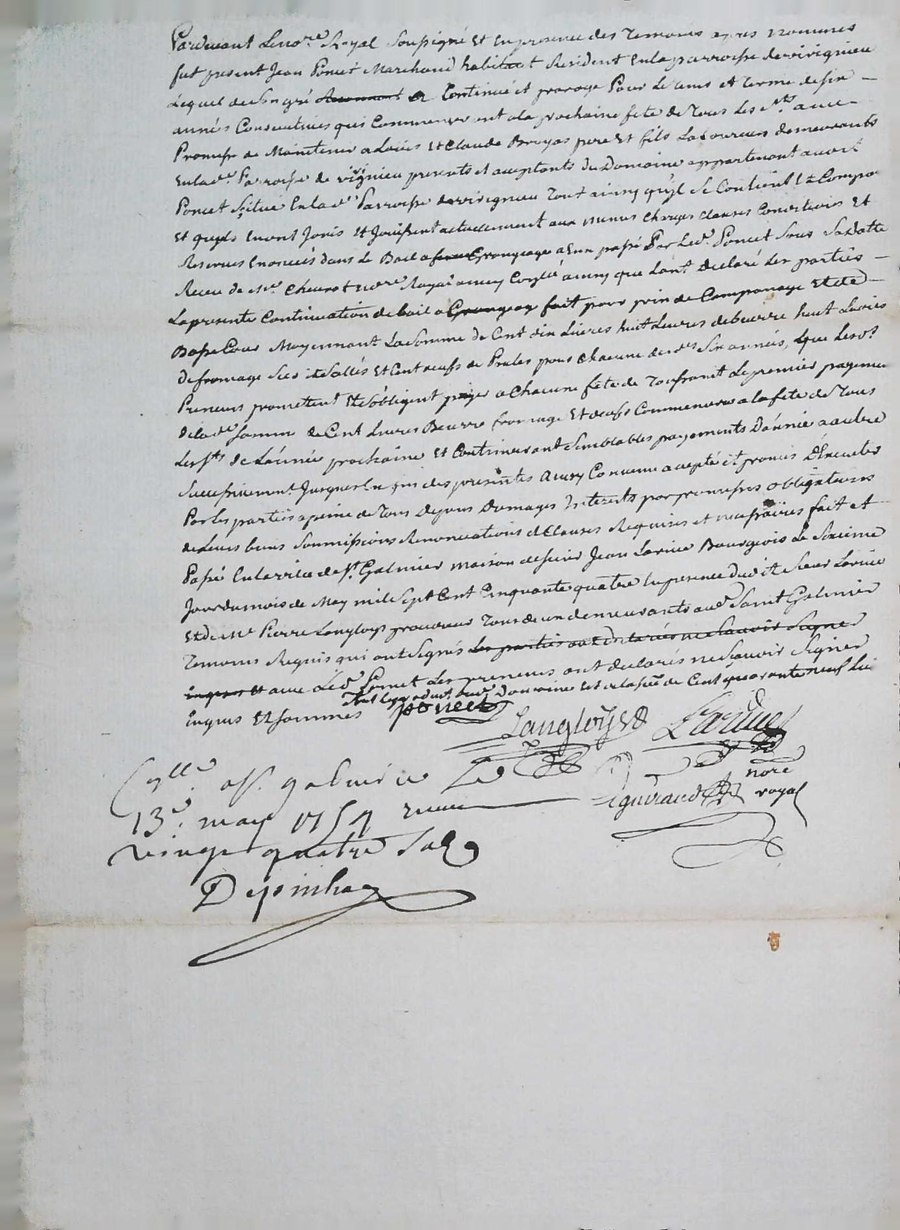 Pardevant Le nore. Royal Soussigné Et En presence des Temoins apres nommés
fut present Jean Poncet Marchand habitant Resident En la parroisse de virignieu
Lequel de son gré a Continué et prorogé Pour Le tems et terme de six
années Consecutives qui Commenceront a la prochaine fete de Tous Les Sts avec
Promesse de Maintenir a Louis Et Claude pere Et fils Laboureurs demeurants
En lad.e Parroisse de virignieu presents et acceptants du Domaine appartenant aud.it
Poncet Situé En lad.e Parroisse de virignieu Tout ainsy qu'yl Se Contient Et Comporte
Et qu'yls En ont Joüis Et Joüissent actuellement aux memes charges clauses Conditions Et
Reserves Enoncées dans Le Bail a Grangeage a Eux passé Par Led.t Poncet Sous Sa datte
Receu de Me nore. Royal ainsy que L'ont Declaré Les parties
La presente Continuation de bail a Grangeage fait pour prix de Et de
Basse Cour Moyennant La Somme de Cent dix Livres huit Livres de beurre huit Livres
de fromage Secs Et Sallés Et Cent oeufs de Poules pour Chacune desd.es Six années, que Lesd.ts
Preneurs promettent Et S'obligent payer a Chacune fete de Toussaint Le premier payement
de lad.e Somme de Cent Livres Beurre fromage Et oeufs Commencera a la fete de Tous
Les Sts de L'année prochaine Et Continueront Semblables payements D'année a autre
Successivement Jusques En fin des presentes ainsy Convenu accepté Et promis D'Executer
Par Les parties a peine de Tous Depens Domages Interets par promesses obligations
de Leurs biens Soumissions Renonciations et Clauses Requises et necessaires fait et
Passé En la ville de St. Galmier maison de sieur Jean Larive Bourgeois Le
Jour du mois de May mil Sept Cent Cinquante quatre En presence dud.it Sieur Larive
Et de Me Pierre Langloys procureur Tous deux demeurants aud.t Saint Galmier
Temoins Requis qui ont Signés Les parties ont declarés ne Sçavoir Signer
Enquis Et avec Led.t Poncet Les preneurs ont declarés ne Sçavoir Signer
Enquis Et Sommés Domaine Est de la Some de Cent quarante neuf Liv
poncet Langloys Larive
Cgllé a St. galmier Le
13e. may 1754 receu
vingt quatre Sols
nore
royal
Despinhac